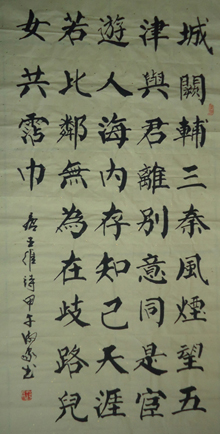 城闕輔三秦風煙望五
津與君離別意同是宦
遊人海內存知己天涯
若比鄰無為在歧路兒
女共霑巾
唐王維詩甲午書